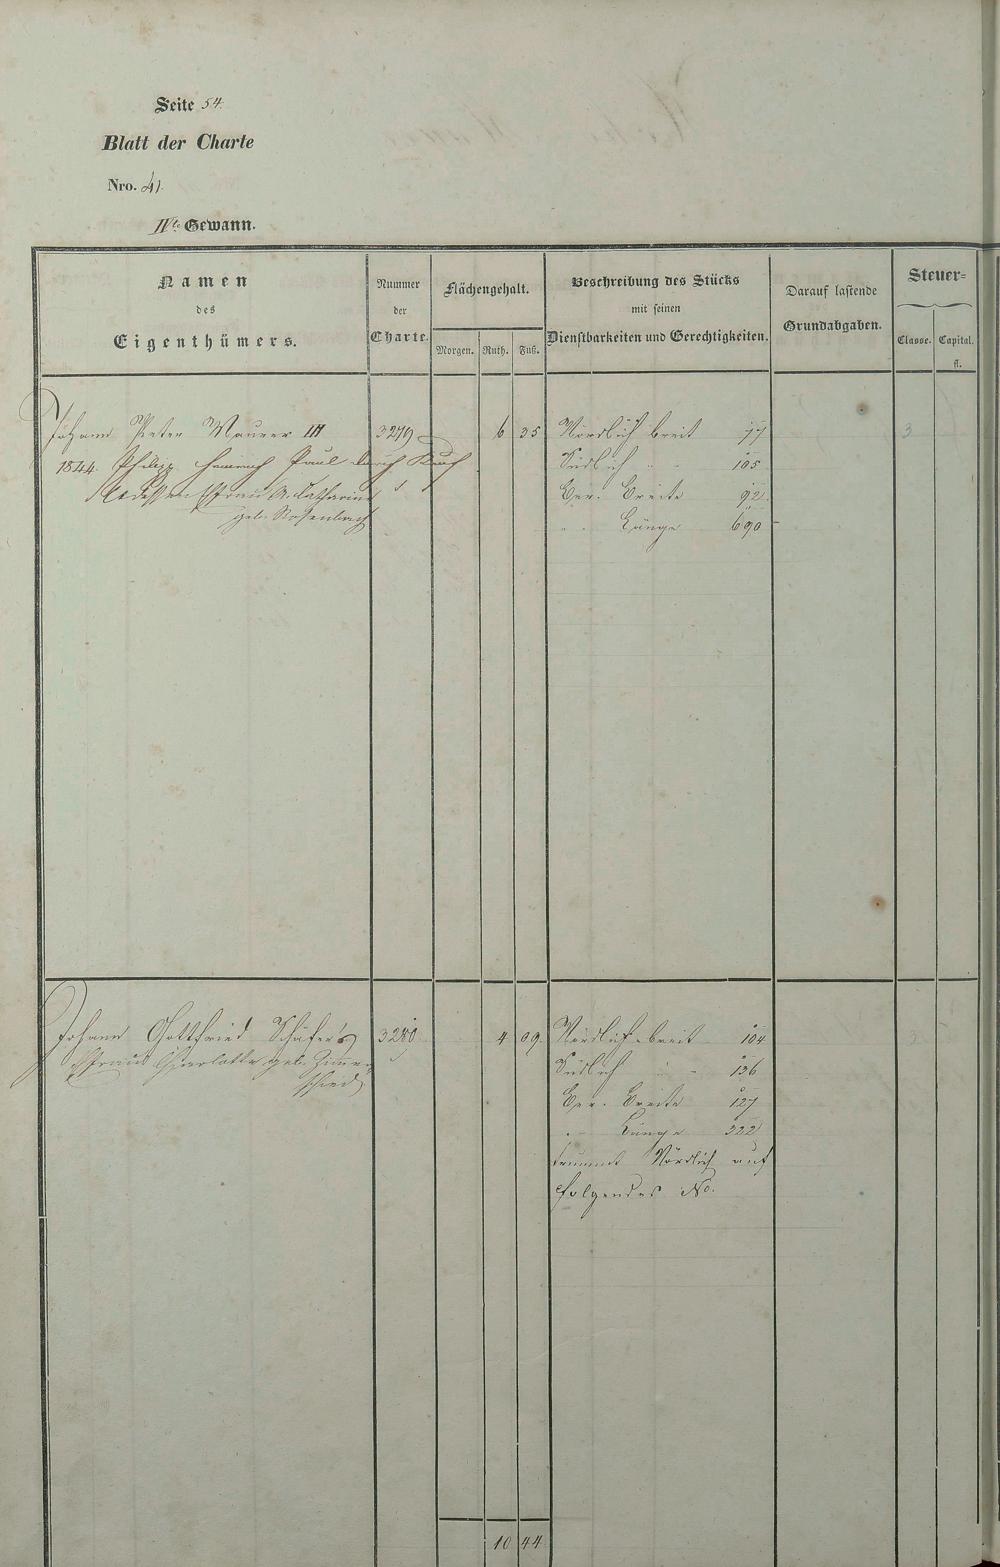 Seite 54.
Blatt der Charte
Nro. 41.
IVte Gewann.
Namen
des
Eigenthümers.
Nummer
der
Charte.
Flächengehalt.
Morgen. Ruth. Fuß.
Beschreibung des Stücks
mit seinen
Dienstbarkeiten und Gerechtigkeiten.
Darauf lastende
Grundabgaben.
Steuer-
Classe. Capital.
fl.
Johann Peter Maurer III 3279 6 35 Nördlich breit 77 3
1844. Philipp Heinrich Paul durch Kauf Südlich " " 105
dessen Efrau A. Catharina Ber. Breite 92
geb. Rosenbach " " Länge 690
Johann Gottfried Schäfer's 3280 4 09 Nördlich breit 104
Efrau Charlotte geb. Südlich " " 136
schied Ber. Breite 127
" Länge 322
Nördlich auf
folgendes No.
10 44